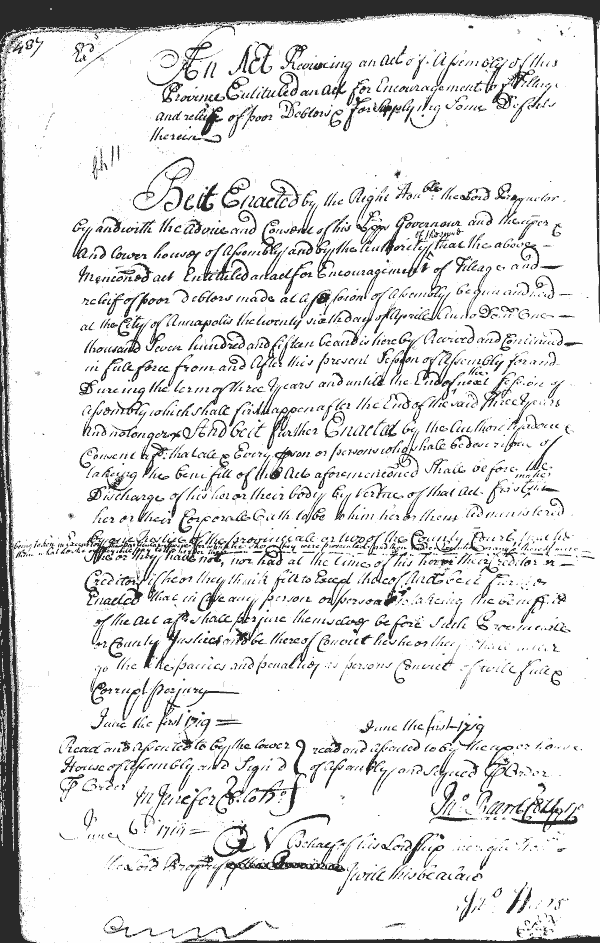 487
An Act Reviveing an act of Assembly of this
Province Entituled an act for Encouragement of Tillage
and relief of poor Debtors & for Supplying Some Defects
therein
Be it Enacted by the Right Honble the Lord Proprietor
by and with the Advice and Consent of his Lops Governour and the uper
And Lower houses of Assembly and by the Authority of the same that the above
Mencioned act Entituled an act for Encouragement of Tillage and
relief of poor debtors made at a Session of Assembly begun and held
at the City of Annapolis the twenty sixth day of Aprill Anno Dom One
thousand Seven hundred and fifteen be and is hereby Revived and Continued
in full force from and After this present Session of Assembly for and
Dureing the term of three Years and untill the End of the next Session of
Assembly which shall first happen after the End of the said Three Years
and no longer And be it further Enacted by the Authority advice &
Consent afd that all & Every pson or persons who shall be desirious of
takeing the benefitt of the Act aforemencioned Shall before the
Discharge of his her or their body by vertue of that Act first take
her or their Corporale Oath to be to him her or them administered
by one Justice of the Provinciale or two of the County Court that he
She or they had not, nor had at the time of his her or their Creditor
Creditors if he or they think fitt to Except thereto And be it further
Enacted that in Case any person or persons takeing the benefitt
of the Act afd shall perjure themselves before Such Provinciale
or County Justices and be thereof Convict he she or they shall under
go the like paines and penaltys as persons Convict of wilfull &
Corrupt perjury
June the first 1719
Read and Assented to by the Lower
House of Assembly and Sign'd
p Order
M Jenifer Cl Lo: Ho:
June the first 1719
read and assented to by the uper house
of Assembly and Signed p Order
June 6th 1719
On behalf of his Lordship
the Lord Propry I will this be a Law
Jno Hart